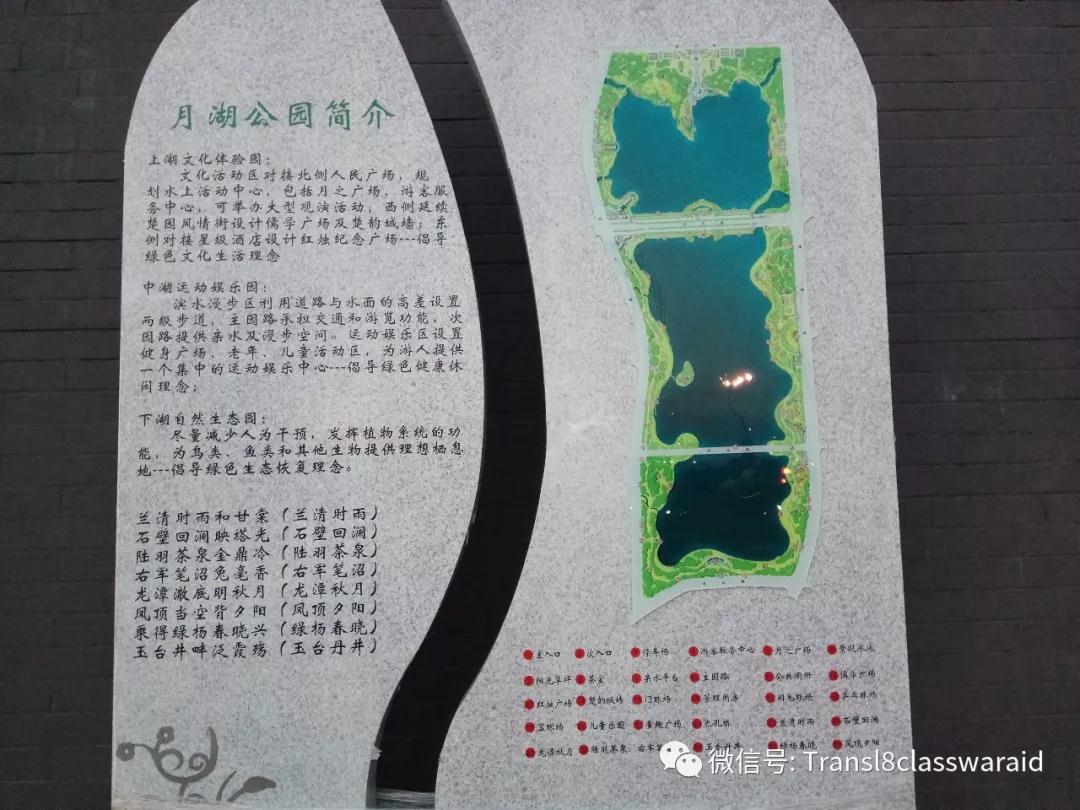 月湖公园简介
上湖文化体验园：
文化活动区对接北侧人民广场，规
划水上活动中心，包括月之广场、游客服
务中心，可举办大型观演活动，西侧延续
楚国风情街设计儒学广场及楚韵城墙；东
侧对接星级酒店设计红烛纪念广场---倡导
绿色文化生活理念
中湖运动娱乐园：
滨水漫步区利用道路与水面的高差设置
两级步道，主园路承担交通和游览功能，次
园路提供亲水及漫步空间。运动娱乐区设置
健身广场、老年、儿童活动区，为游人提供
一个集中的运动娱乐中心---倡导绿色健康休
闲理念；
下湖自然生态园：
尽量减少人为干预，发挥植物系统的功
能，为鸟类、鱼类和其他生物提供理想栖息
地---倡导绿色生态恢复理念。
兰清时雨和甘棠（兰清时雨）
石壁回澜映塔光（石壁回澜）
陆羽茶泉金鼎冷（陆羽茶泉）
右军笔沼兔毫香（右军笔沼）
龙潭澈底明秋月（龙潭秋月）
凤顶当空背夕阳（凤顶夕阳）
乘得绿杨春晓兴（绿杨春晓）
玉台井畔泛霞殇（玉台丹井）
主入口 次入口 停车场 游客服务中心 月之广场 景观水池
阳光草坪 茶室 亲水平台 主园路 公共厕所 儒学广场
红烛广场 楚韵城墙 门球场 管理用房 羽毛球场 乒乓球场
篮球场 儿童乐园 童趣广场 九孔桥 兰清时雨 石壁回澜
龙潭秋月 陆羽茶泉 右军 玉台丹井 绿杨春晓 凤顶夕阳
微信号: Transl8classwaraid